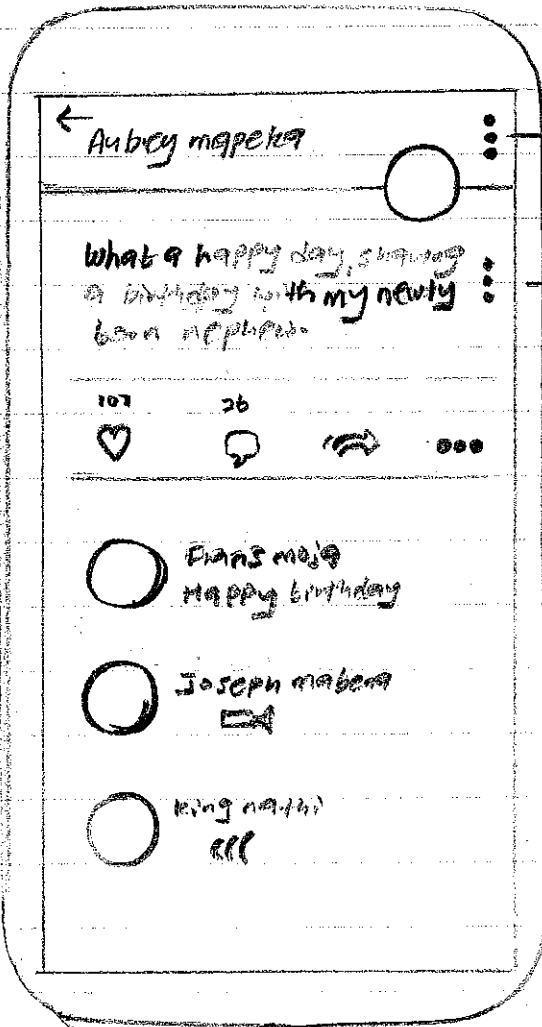 Aubrey mapeka
What a happy day, sharing
a birthday with my newly
born nephew.
107
26
Frans moja
Happy birthday
Joseph mabena
king nathi